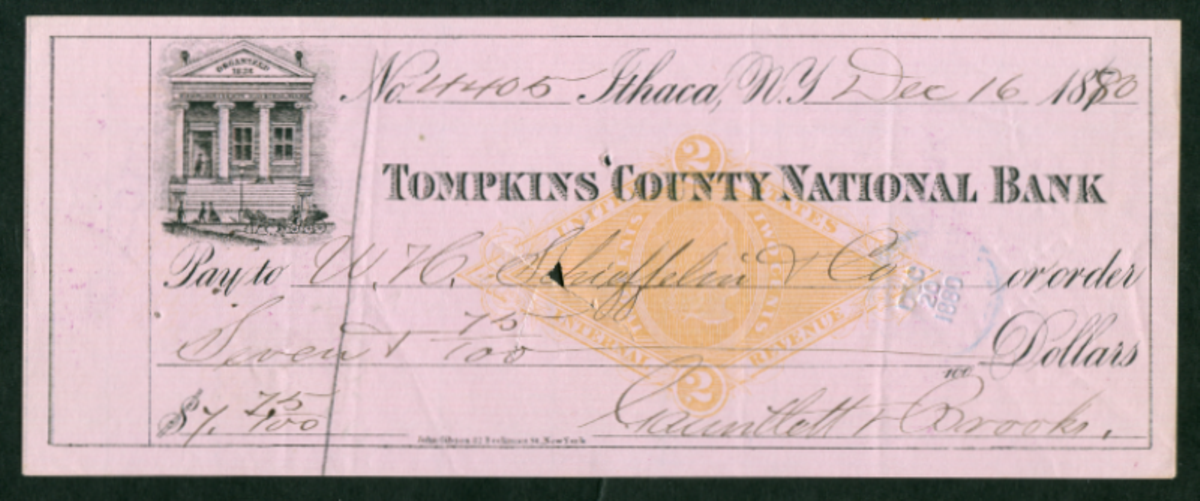 ORGANIZED
1836
No. 4405 Ithaca, N.Y. Dec 16 1880
TOMPKINS COUNTY NATIONAL BANK
2
UNITED STATES
TWO CENTS
INTERNAL REVENUE
2
Pay to W. H. Schieffelin & Co or order
DEC
20
1880
Seven & 75/100 Dollars
100
$7. 75/100
Gauntlett & Brooks.
John Gibson, 82 Beekman St. New York